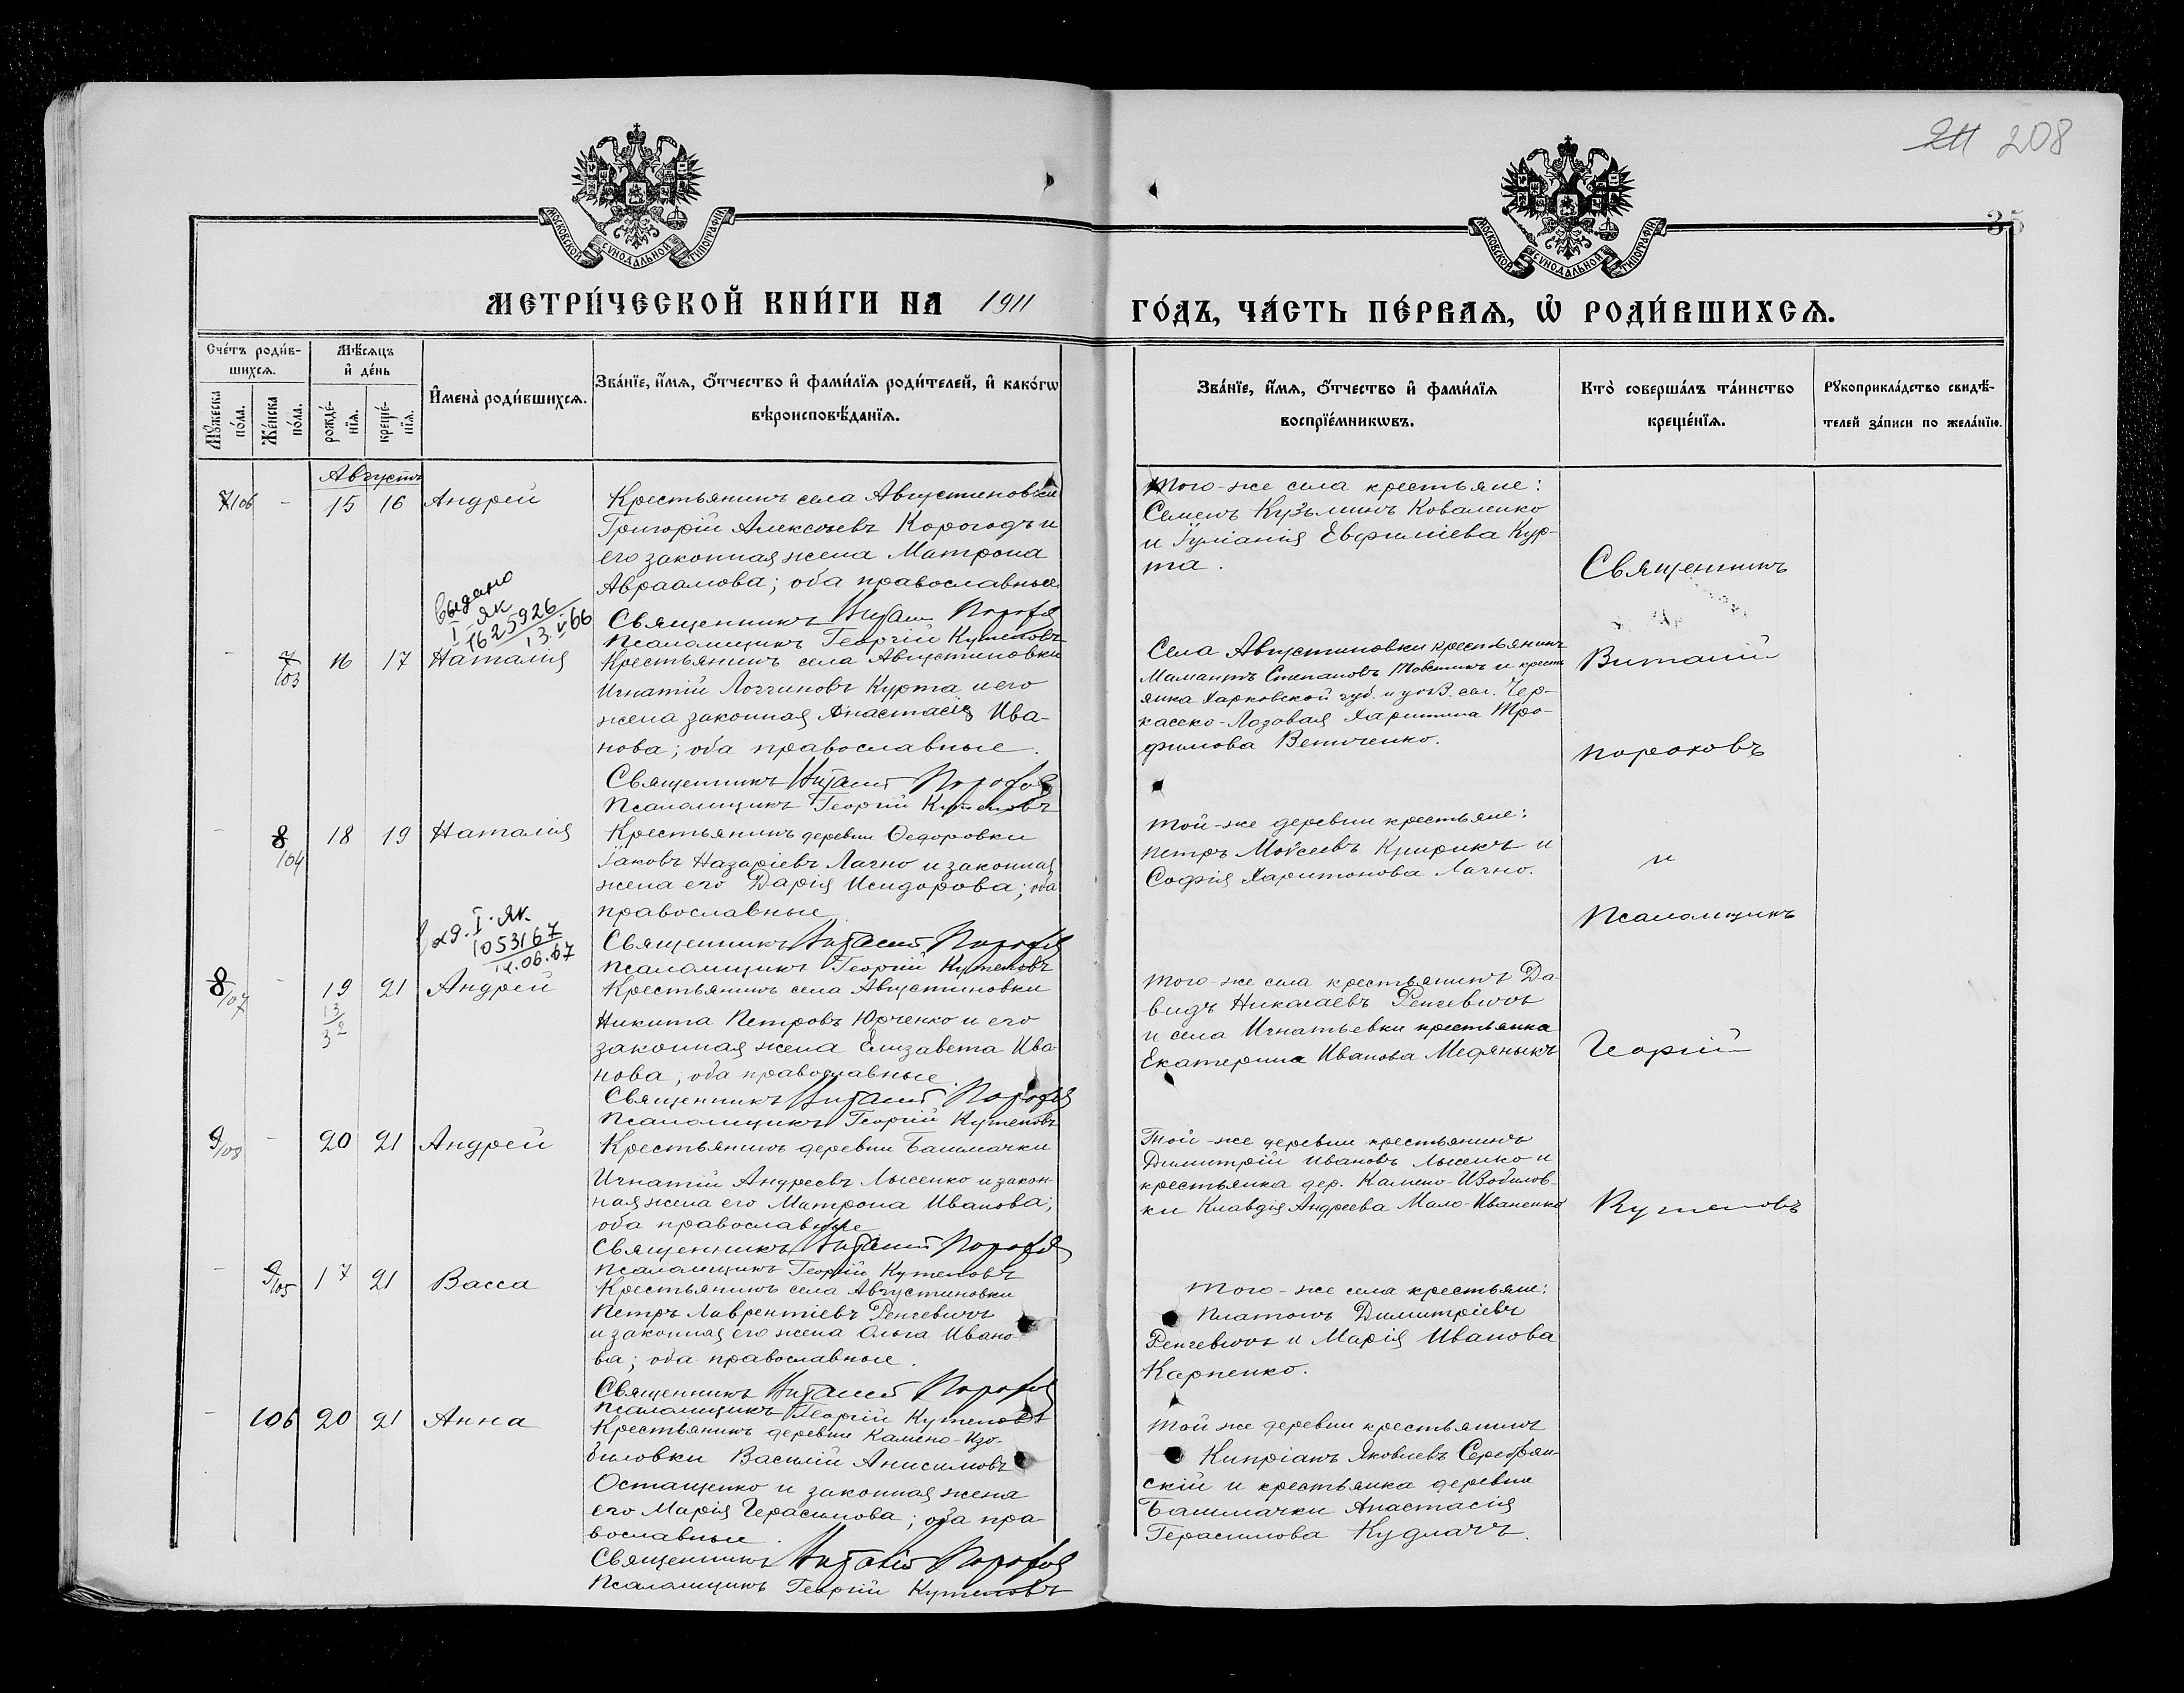 211 208
35
МОСКОВСКОЙ СѴНОДАЛЬНОЙ ТИПОГРАФІИ
МОСКОВСКОЙ СѴНОДАЛЬНОЙ ТИПОГРАФІИ
МЕТРИ́ЧЕСКОЙ КНИ́ГИ НА 1911 ГО́ДЪ, ЧА́СТЬ ПЕ́РВАѦ, Ѡ РОДИ́ВШИХСѦ.
Сче́тъ роди́в-
шихсѧ.
Мꙋжеска по́ла.
Же́нска по́ла.
Мѣ́сѧцъ
и҆ де́нь
рожде́-
нїѧ.
креще́-
нїѧ.
И҆мена̀ роди́вшихсѧ.
Зва́нїе, и҆́мѧ, ѻ҆́тчество и҆ фами́лїѧ роди́телей, и҆ како́гѡ
вѣроисповѣ́данїѧ.
Зва́нїе, и҆́мѧ, ѻ҆́тчество и҆ фами́лїѧ
воспрїе́мникѡвъ.
Кто̀ соверша́лъ та́инство
креще́нїѧ.
Рꙋкоприкла́дство свидѣ́-
телей за́писи по жела́нїю.
Августъ
7/106 - 15 16 Андрей
Крестьянинъ села Августиновки
Григорій Алексѣевъ Корогодъ и
его законная жена Матрона
Авраамова; оба православные
Священникъ Виталій Пороховъ
Псаломщикъ Георгій Кутеповъ
Того-же села крестьяне:
Семенъ Кузьминъ Коваленко
и Іуліанія Евфиміева Кур-
та.
Выдано
I ЯК
1625926
13.V 66
- 7/103 16 17 Наталія
Крестьянинъ села Августиновки
Игнатій Логгиновъ Курта и его
жена законная Анастасія Ива-
нова; оба православные.
Священникъ Виталій Пороховъ
Псаломщикъ Георгій Кутеповъ
Села Августиновки крестьянинъ
Мамантъ Степановъ Товстикъ и кресть
янка Харьковской губ. и уѣз. сл. Чер-
касско-Лозовая Харитина Тро-
фимова Величенко.
- 8/104 18 19 Наталія
Крестьянинъ деревни Ѳедоровки
Іаковъ Назаріевъ Лагно и законная
жена его Дарія Исидорова; оба
православные
Священникъ Виталій Пороховъ
Псаломщикъ Георгій Кутеповъ
Той-же деревни крестьяне:
Петръ Моѵсеевъ Кирикъ и
Софія Харитонова Лагно.
Выд. I. ЯК.
1053167
8/107 - 19 21 Андрей
13
Крестьянинъ села Августиновки
Никита Петровъ Юрченко и его
законная жена Елизавета Ива
нова, оба православные.
Священникъ Виталій Пороховъ
Псаломщикъ Георгій Кутеповъ
Того-же села крестьянинъ Да-
видъ Николаевъ Ренгевичъ
и села Игнатьевки крестьянка
Екатерина Иванова Медяныкъ
9/108 - 20 21 Андрей
Крестьянинъ деревни Башмачки
Игнатій Андреевъ Лысенко и закон
ная жена его Матрона Иванова;
оба православные
Священникъ Виталій Пороховъ
Псаломщикъ Георгій Кутеповъ
Той-же деревни крестьянинъ
Димитрій Ивановъ Лысенко и
крестьянка дер. Камено-Изобилов-
ки Клавдія Андреева Мало-Иваненко
- 9/105 17 21 Васса
Крестьянинъ села Августиновки
Петръ Лаврентіевъ Ренгевичъ
и законная его жена Ольга Ивано-
ва; оба православные.
Священникъ Виталій Пороховъ
Псаломщикъ Георгій Кутеповъ
Того-же села крестьяне:
Платонъ Димитріевъ
Ренгевичъ и Марія Иванова
Карпенко.
- 106 20 21 Анна
Крестьянинъ деревни Камено-Изо-
биловки Василій Анисимовъ
Остащенко и законная жена
его Марія Герасимова; оба пра-
вославные.
Священникъ Виталій Пороховъ
Псаломщикъ Георгій Кутеповъ
Той же деревни крестьянинъ
Кипріанъ Яковлевъ Серебрян-
скій и крестьянка деревни
Башмачки Анастасія
Герасимова Кудлачъ.
Священникъ
Виталій
Пороховъ
и
Псаломщикъ
Георгій
Кутеповъ